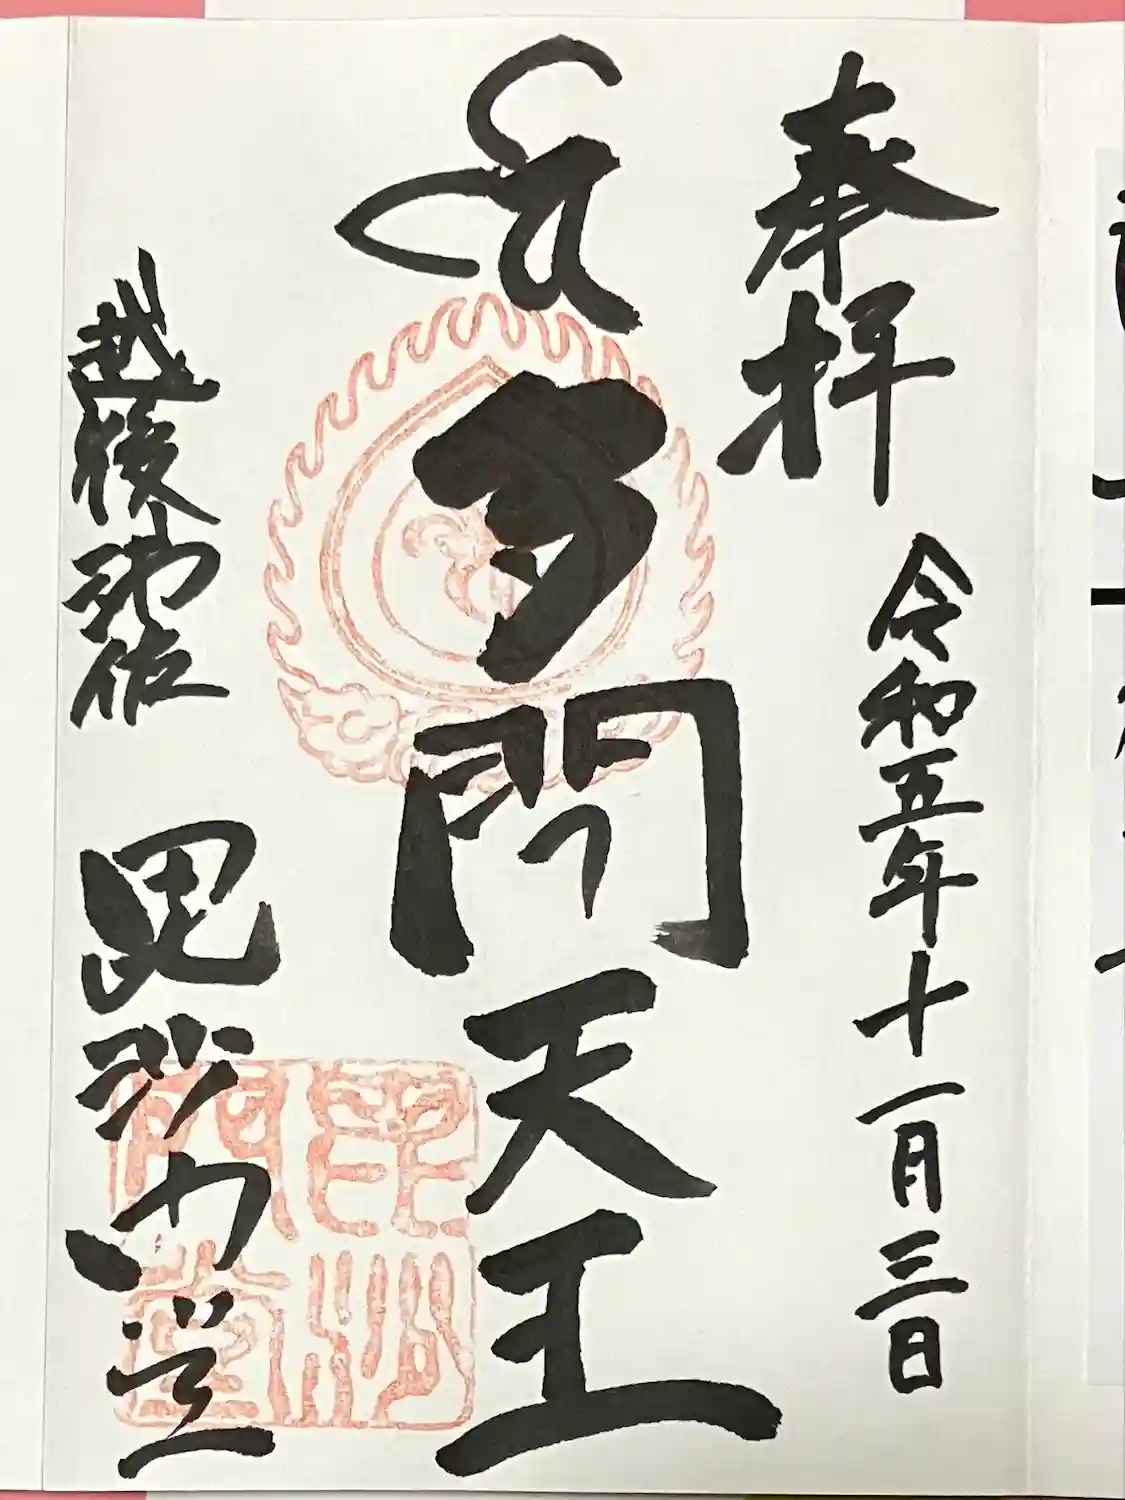 奉拝 令和五年十一月三日
多聞天王
越後浦佐 毘沙門堂
毘沙門堂